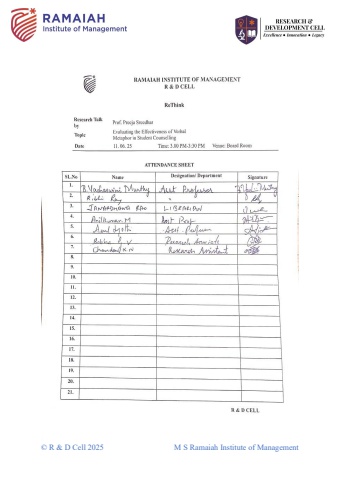 RAMAIAH
Institute of Management
RESEARCH &
DEVELOPMENT CELL
Excellence • Innovation • Legacy
RAMAIAH INSTITUTE OF MANAGEMENT
R & D CELL
ReThink
Research Talk by Prof. Pooja Sreedhar
Topic Evaluating the Effectiveness of Verbal
Metaphor in Student Counselling
Date 11. 06. 25 Time: 3.00 PM-3:30 PM Venue: Board Room
ATTENDANCE SHEET
Sl.No Name Designation/Department Signature
1. B. Yashaswini Murthy Asst Professor
2. Ray "
3. JANARDHANA RAO LIBRARIAN
4. Anilkumar. M Asst Prof
5. Asst Professor
6. Research Associate
7. Chandan K.N Research Assistant
8.
9.
10.
11.
12.
13.
14.
15.
16.
17.
18.
19.
20.
21.
R & D CELL
© R & D Cell 2025 M S Ramaiah Institute of Management